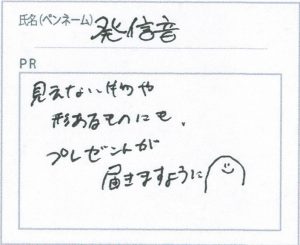 氏名(ペンネーム) 発信音
PR
見えない物や
形あるものにも、
プレゼントが
届きますように